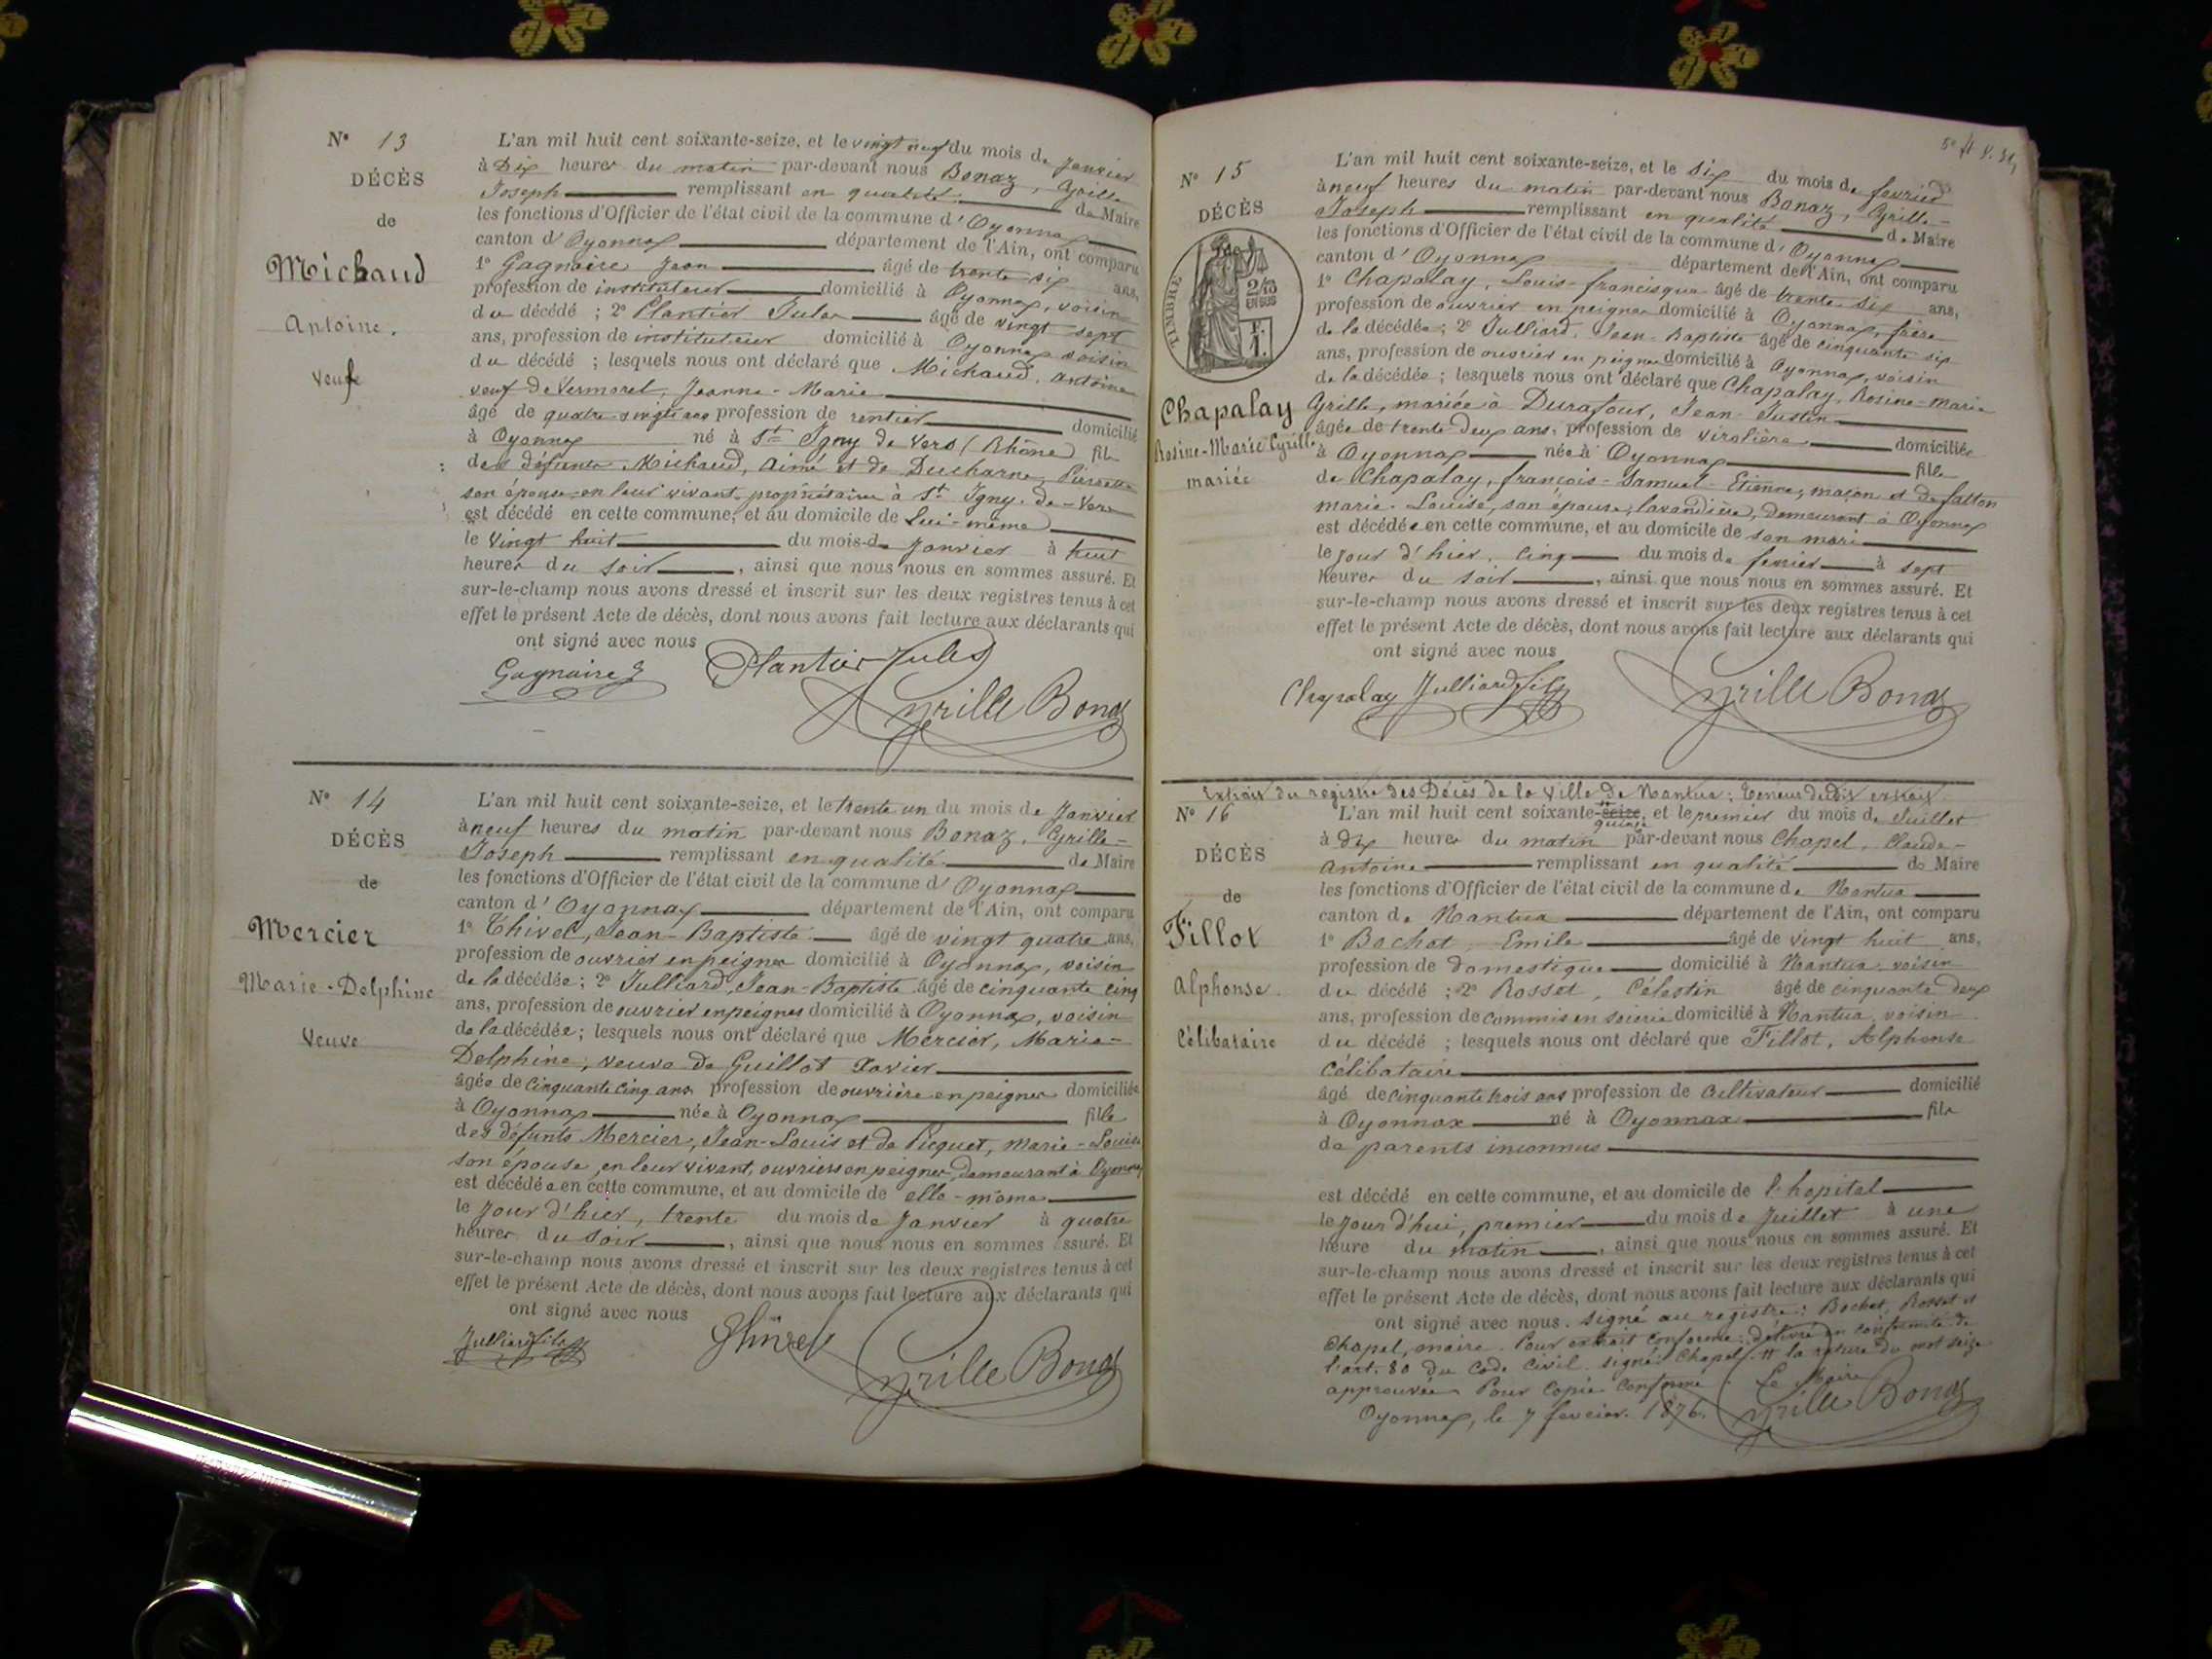 N° 13
DÉCÈS
de
Michaud
Antoine.
Veuf
L'an mil huit cent soixante-seize, et le vingt neuf du mois de Janvier
à Dix heures du matin par-devant nous Bonaz, Cyrille
Joseph remplissant en qualité de Maire
les fonctions d'Officier de l'état civil de la commune d'Oyonnax
canton d'Oyonnax département de l'Ain, ont comparu
1° Gagnaire Jean âgé de trente six ans,
profession de instituteur domicilié à Oyonnax, voisin
du décédé ; 2° Plantier Jules âgé de vingt sept
ans, profession de instituteur domicilié à Oyonnax voisin
du décédé ; lesquels nous ont déclaré que Michaud, Antoine
veuf de Vermorel, Jeanne-Marie
âgé de quatre-vingts ans profession de rentier domicilié
à Oyonnax né à St Igny de Vers (Rhône) fils
des défunts Michaud, Aimé et de Ducharne, Pierrette
son épouse, en leur vivant propriétaires à St Igny-de-Vers
est décédé en cette commune, et au domicile de lui-même
le Vingt huit du mois de Janvier à huit
heures du soir, ainsi que nous nous en sommes assuré. Et
sur-le-champ nous avons dressé et inscrit sur les deux registres tenus à cet
effet le présent Acte de décès, dont nous avons fait lecture aux déclarants qui
ont signé avec nous
Gagnaire J Plantier Jules
Cyrille Bonaz
N° 14
DÉCÈS
de
Mercier
Marie-Delphine
Veuve
L'an mil huit cent soixante-seize, et le trente un du mois de Janvier
à neuf heures du matin par-devant nous Bonaz, Cyrille-
Joseph remplissant en qualité de Maire
les fonctions d'Officier de l'état civil de la commune d'Oyonnax
canton d'Oyonnax département de l'Ain, ont comparu
1° Thivel, Jean-Baptiste âgé de vingt quatre ans,
profession de ouvrier en peignes domicilié à Oyonnax, voisin
de la décédée ; 2° Julliard, Jean-Baptiste âgé de cinquante cinq
ans, profession de ouvrier en peignes domicilié à Oyonnax, voisin
de la décédée ; lesquels nous ont déclaré que Mercier, Marie-
Delphine, veuve de Guillot Xavier
âgée de Cinquante cinq ans profession de ouvrière en peignes domiciliée
à Oyonnax née à Oyonnax fille
des défunts Mercier, Jean-Louis et de Picquet, Marie-Louise
son épouse, en leur vivant, ouvriers en peignes, demeurant à Oyonnax
est décédée en cette commune, et au domicile de elle-même
le Jour d'hier, trente du mois de Janvier à quatre
heures du soir, ainsi que nous nous en sommes assuré. Et
sur-le-champ nous avons dressé et inscrit sur les deux registres tenus à cet
effet le présent Acte de décès, dont nous avons fait lecture aux déclarants qui
ont signé avec nous
Julliard fils Thivel
Cyrille Bonaz
N° 15
DÉCÈS
TIMBRE
2/10
EN SUS
Chapalay
Rosine-Marie Cyrille
mariée
L'an mil huit cent soixante-seize, et le six du mois de février
à neuf heures du matin par-devant nous Bonaz, Cyrille-
Joseph remplissant en qualité de Maire
les fonctions d'Officier de l'état civil de la commune d'Oyonnax
canton d'Oyonnax département de l'Ain, ont comparu
1° Chapalay, Louis-francisque âgé de trente-six ans,
profession de ouvrier en peignes domicilié à Oyonnax, frère
de la décédée ; 2° Julliard, Jean-Baptiste âgé de cinquante six
ans, profession de ouvrier en peignes domicilié à Oyonnax, voisin
de la décédée ; lesquels nous ont déclaré que Chapalay, Rosine-Marie
Cyrille, mariée à Durafour, Jean-Justin
âgée de trente deux ans, profession de virolière domiciliée
à Oyonnax née à Oyonnax fille
de Chapalay, françois-Samuel-Etienne, maçon et de falton
marie-Louise, son épouse, lavandière, demeurant à Oyonnax
est décédée en cette commune, et au domicile de son mari
le jour d'hier, cinq du mois de février à sept
heures du soir, ainsi que nous nous en sommes assuré. Et
sur-le-champ nous avons dressé et inscrit sur les deux registres tenus à cet
effet le présent Acte de décès, dont nous avons fait lecture aux déclarants qui
ont signé avec nous
Chapalay Julliard fils Cyrille Bonaz
Extrait du registre des Décès de la Ville de Nantua : Teneur dudit extrait.
N° 16
DÉCÈS
de
Fillot
Alphonse.
Célibataire
L'an mil huit cent soixante-seize quinze, et le premier du mois de Juillet
à dix heures du matin par-devant nous Chapel, Claude-
Antoine remplissant en qualité de Maire
les fonctions d'Officier de l'état civil de la commune de Nantua
canton de Nantua département de l'Ain, ont comparu
1° Bochet, Emile âgé de vingt huit ans,
profession de domestique domicilié à Nantua, voisin
du décédé ; 2° Rosset, Célestin âgé de cinquante deux
ans, profession de commis en soierie domicilié à Nantua, voisin
du décédé ; lesquels nous ont déclaré que Fillot, Alphonse
célibataire
âgé de cinquante trois ans profession de cultivateur domicilié
à Oyonnax né à Oyonnax fils
de parents inconnus
est décédé en cette commune, et au domicile de l'hopital
le Jour d'hui, premier du mois de Juillet à une
heure du matin, ainsi que nous nous en sommes assuré. Et
sur-le-champ nous avons dressé et inscrit sur les deux registres tenus à cet
effet le présent Acte de décès, dont nous avons fait lecture aux déclarants qui
ont signé avec nous. Signé au registre : Bochet, Rosset et
Chapel, maire. Pour extrait conforme : délivré en conformité de
l'art. 80 du Code Civil. signé Chapel. # la rature du mot seize
approuvée Pour Copie Conforme Le Maire
Oyonnax, le 7 février 1876. Cyrille Bonaz